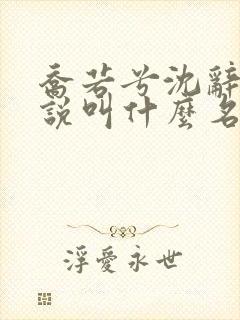 喬若兮沈辭
說叫什麼名
浮愛永世